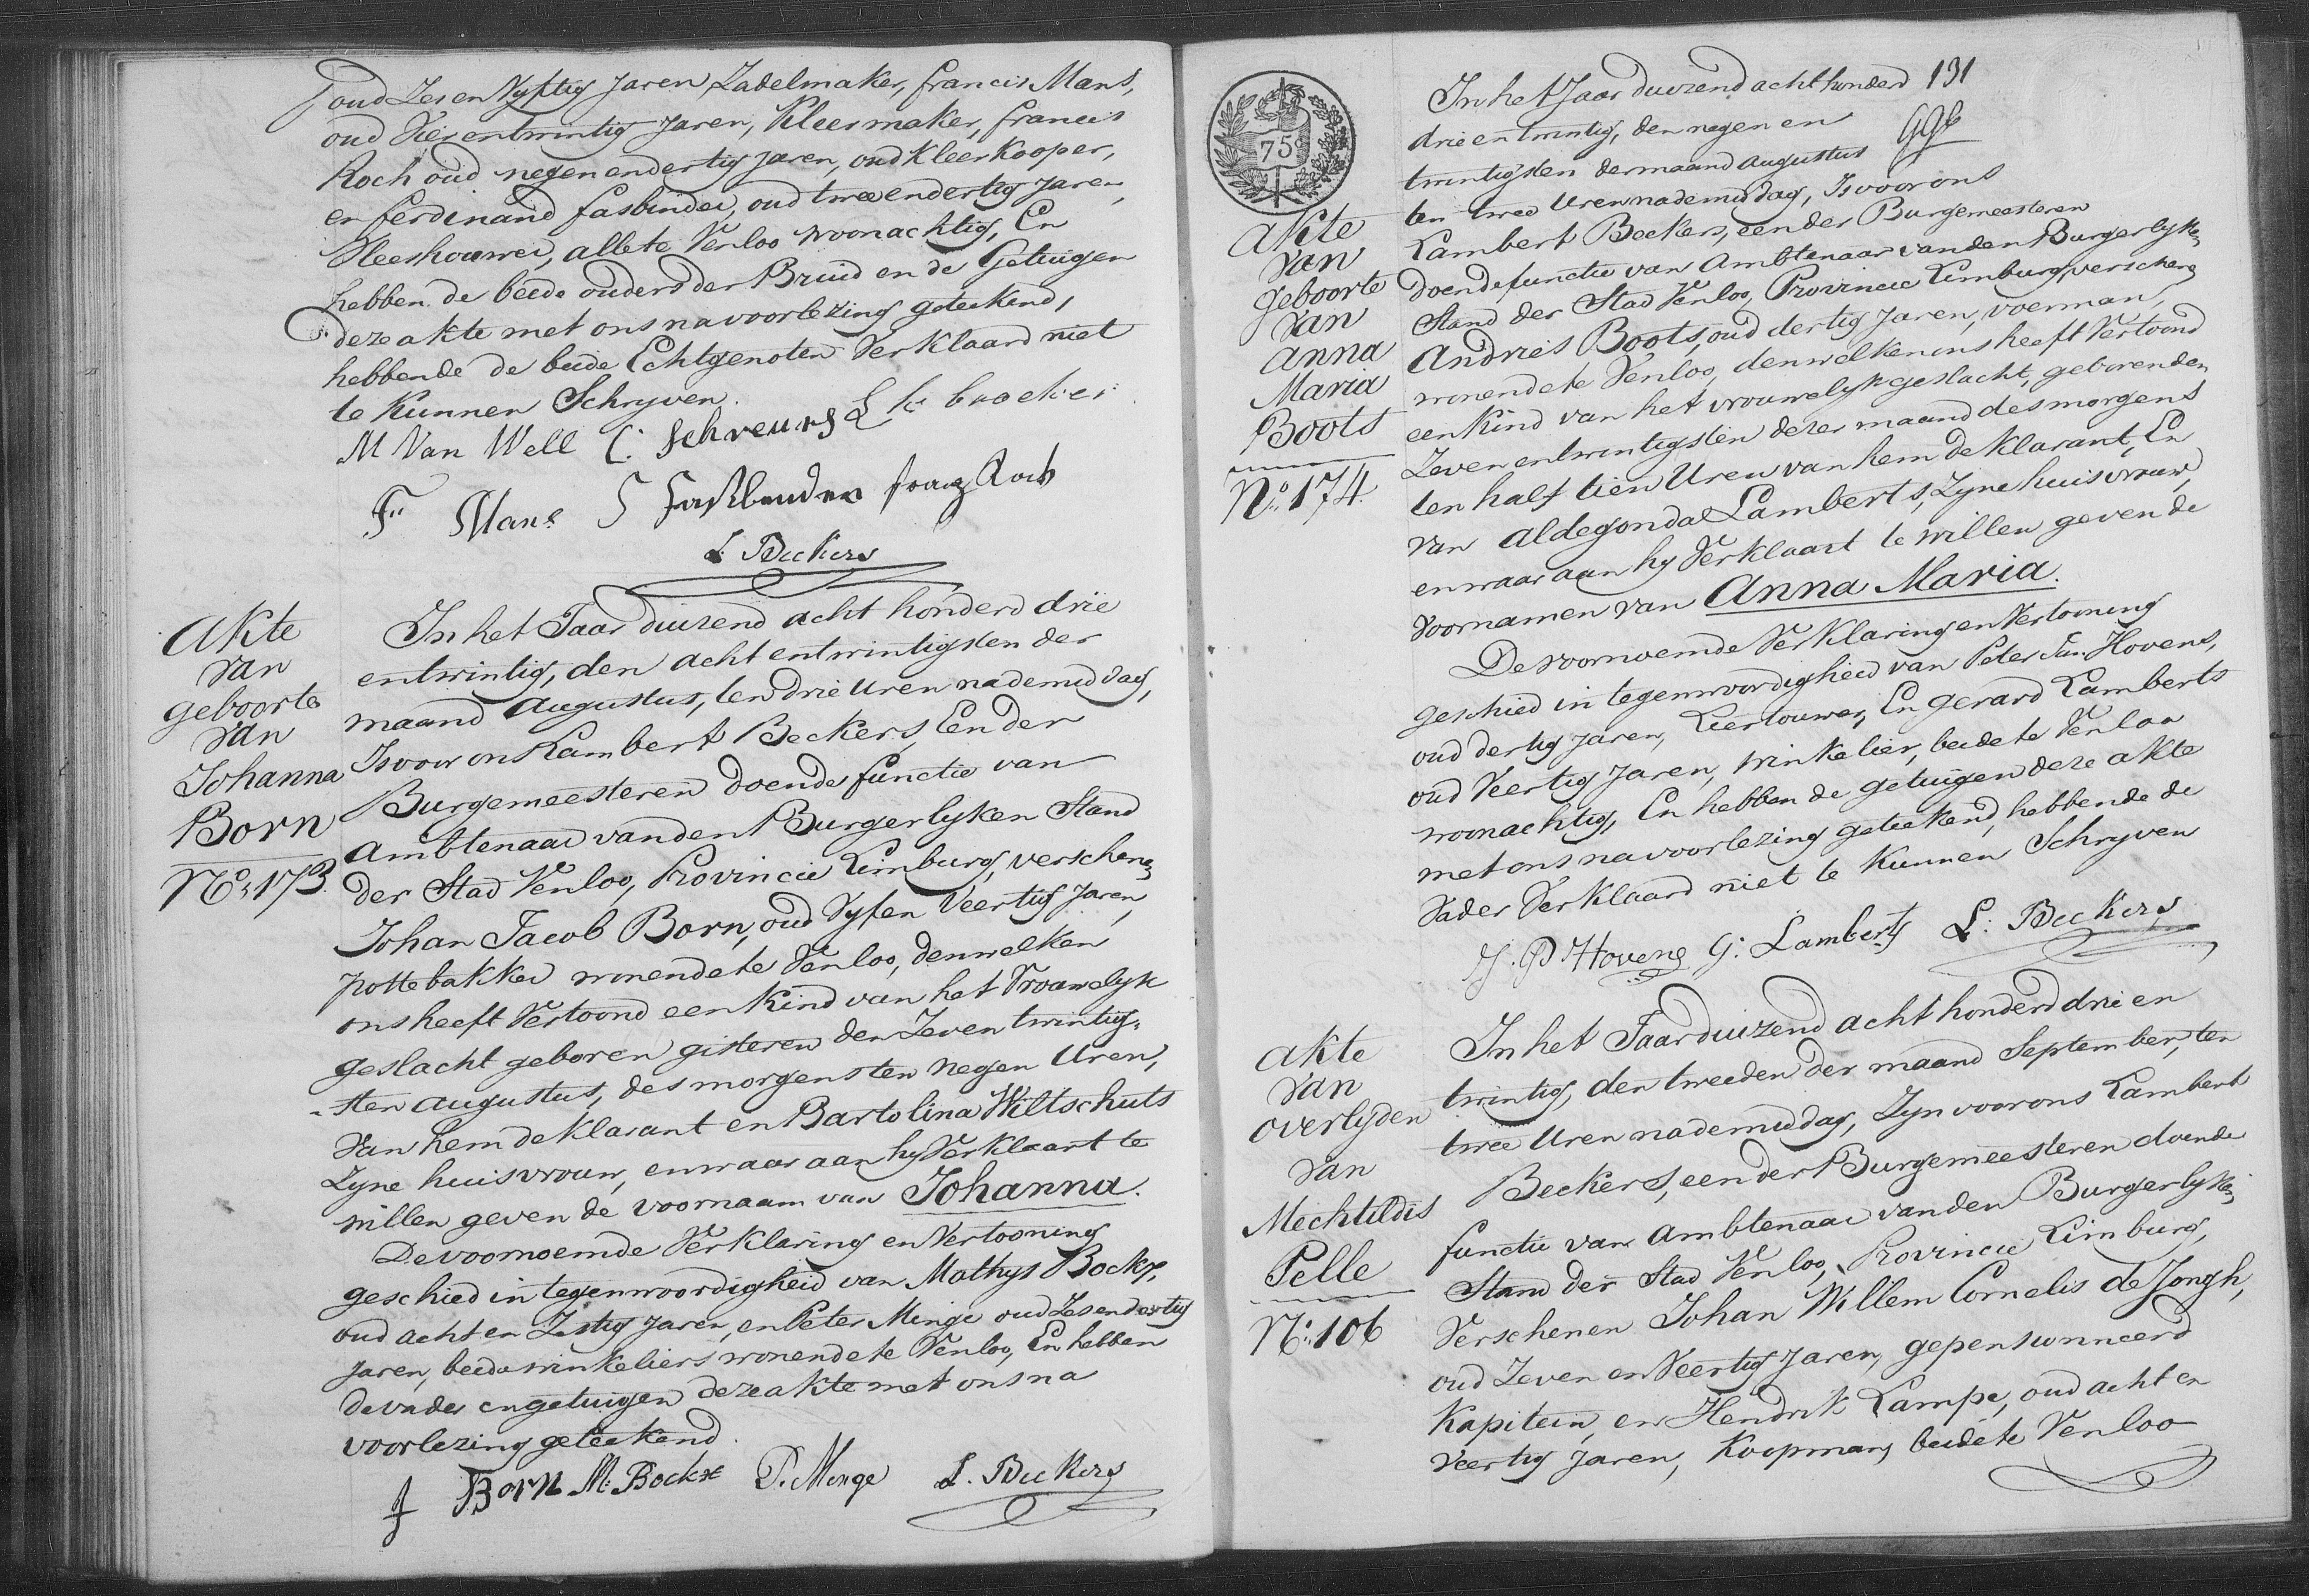 oud Zes en Vyftig Jaren Zadelmaker, francis Mans,
oud Vier entwintig Jaren, Kleermaker, francis
Roch oud negen endertig jaren, oud Kleerkooper,
en ferdinand fasbinder, oud twee endertig Jaren,
Vleeshouwer, alle te Venloo woonachtig, En
hebben de beide ouders der Bruid en de Getuigen
deze akte met ons na voorlezing geteekend,
hebbende de beide Echtgenoten Verklaard niet
te Kunnen Schryven.
M Van Well C: Schreurs
F Mans Fasbender franz Roch
L. Beckers
Akte
Van
geboorte
Van
Johanna
Born
No: 173.
In het Jaar duizend acht honderd drie
entwintig, den acht entwintigsten der
maand Augustus, ten drie Uren nademiddag,
Is voor ons Lambert Beckers, Een der
Burgemeesteren doende functie van
Ambtenaar van den Burgerlyken Stand
der Stad Venloo, Provincie Limburg, verschenen
Johan Jacob Born, oud Vyf en Veertig Jaren,
pottebakker wonende te Venloo, denwelken
ons heeft Vertoond een Kind van het Vrouwelyk
geslacht geboren gisteren den Zeven twintig-
-sten augustus, des morgens ten negen Uren,
Van hem deklarant en Bartolina Wiltschuts
Zyne huisvrouw, en waar aan hy Verklaart te
willen geven de voornaam van Johanna.
De voornoemde Verklaring en Vertooning
geschied in tegenwoordigheid van Mathys Bockx,
oud acht en Zestig Jaren, en Peter Minge oud Zes en dertig
Jaren, beide winkeliers wonende te Venloo, En hebben
de vader en getuigen deze akte met ons na
voorlezing geteekend.
J Born M: Bockx P. Menge L. Beckers
131
75c
Akte
Van
Geboorte
Van
Anna
Maria
Boots
No: 174.
In het Jaar duizend acht honderd
drie en twintig, den negen en
twintigsten der maand augustus
ten twee Uren nademiddag, Is voor ons
Lambert Beckers, een der Burgemeesteren
doende functie van Ambtenaar van den Burgerlyken
Stand der Stad Venloo, Provincie Limburg, verschenen
Andries Boots, oud dertig Jaren, voerman,
wonende te Venloo, denwelken ons heeft Vertoond
een Kind van het vrouwelyk geslacht, geboren den
Zeven entwintigsten dezer maand des morgens
ten half tien Uren van hem deklarant, En
van Aldegonda Lamberts, Zyne huisvrouw,
en waar aan hy Verklaart te willen geven de
Voornamen van Anna Maria.
De voornoemde Verklaring en Vertooning
geschied in tegenwoordigheid van Peter Jan Hovens,
oud dertig Jaren, Leertouwer, En Gerard Lamberts
oud Veertig Jaren, winkelier, beide te Venloo
woonachtig, En hebben de getuigen deze akte
met ons na voorlezing geteekend, hebbende de
Vader Verklaard niet te Kunnen Schryven
J. P. Hovens G: Lamberts L: Beckers
Akte
Van
overlyden
Van
Mechtildis
Pelle
No: 106
In het Jaar duizend acht honderd drie en
twintig, den tweeden der maand September, ten
twee Uren nademiddag, Zyn voor ons Lambert
Beckers, een der Burgemeesteren doende
functie van Ambtenaar van den Burgerlyken
Stand der Stad Venloo, Provincie Limburg,
Verschenen Johan Willem Cornelis de Jongh,
oud Zeven en Veertig Jaren, gepensionneerd
Kapitein, en Hendrik Kampe, oud acht en
Veertig Jaren, Koopman, beide te Venloo